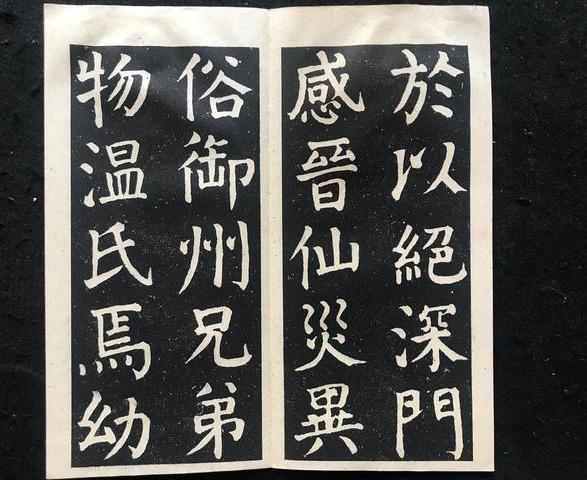 於以絕深門
感晉仙災異
俗御州兄弟
物温氏焉幼